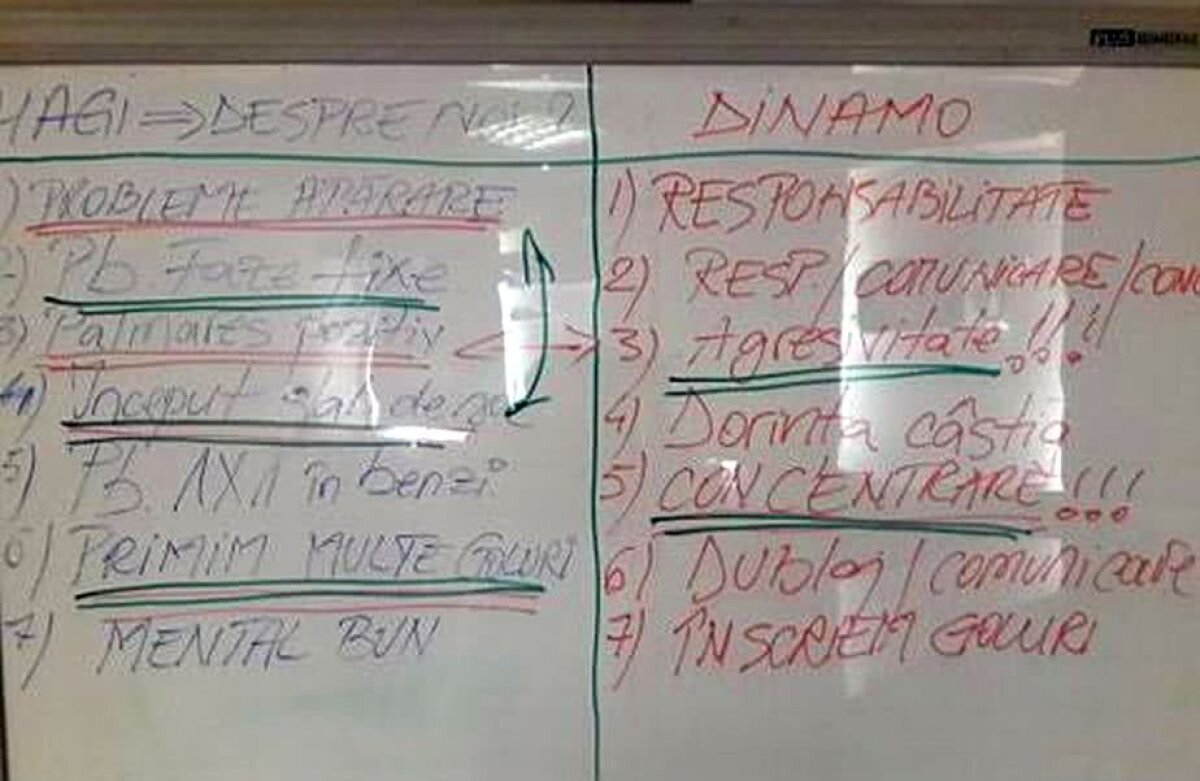 HAGI ⇒ DESPRE NOI?
1) PROBLEME APĂRARE
2) Pb. Faze fixe
3) Palmares pozitiv
4) Început slab de
5) Pb. AXĂ în benzi
6) PRIMIM MULTE GOLURI
7) MENTAL BUN
DINAMO
1) RESPONSABILITATE
2) RESP./COMUNICARE/
3) Agresivitate!!!!
4) Dorința câștig
5) CONCENTRARE!!!
6) Dublaj/comunicare
7) ÎNSCRIEM GOLURI